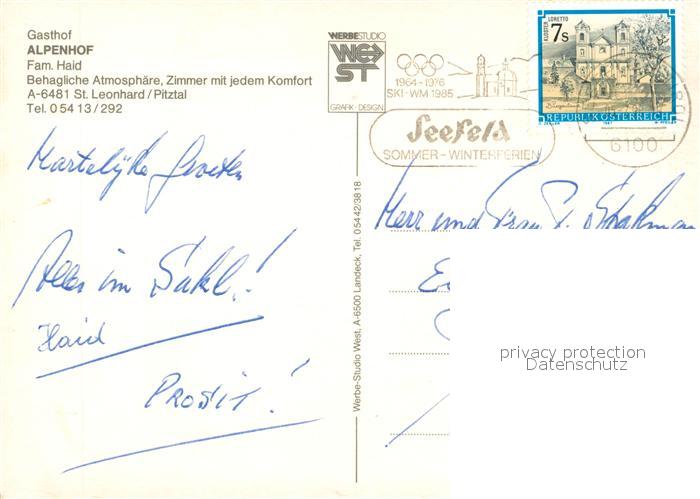 Gasthof
ALPENHOF
Fam. Haid
Behagliche Atmosphäre, Zimmer mit jedem Komfort
A-6481 St. Leonhard / Pitztal
Tel. 0 54 13 / 292
WERBESTUDIO
WEST
GRAFIK-DESIGN
1964-1976
SKI-WM 1985
Seefeld
SOMMER-WINTERFERIEN
KLOSTER LORETTO
7s
REPUBLIK ÖSTERREICH
1987
6100
Hartelijke Groeten
Alles im
Haid
PROSIT!
Werbe-Studio West, A-6500 Landeck, Tel. 0 54 42 / 38 18
Herr und Frau
privacy protection
Datenschutz